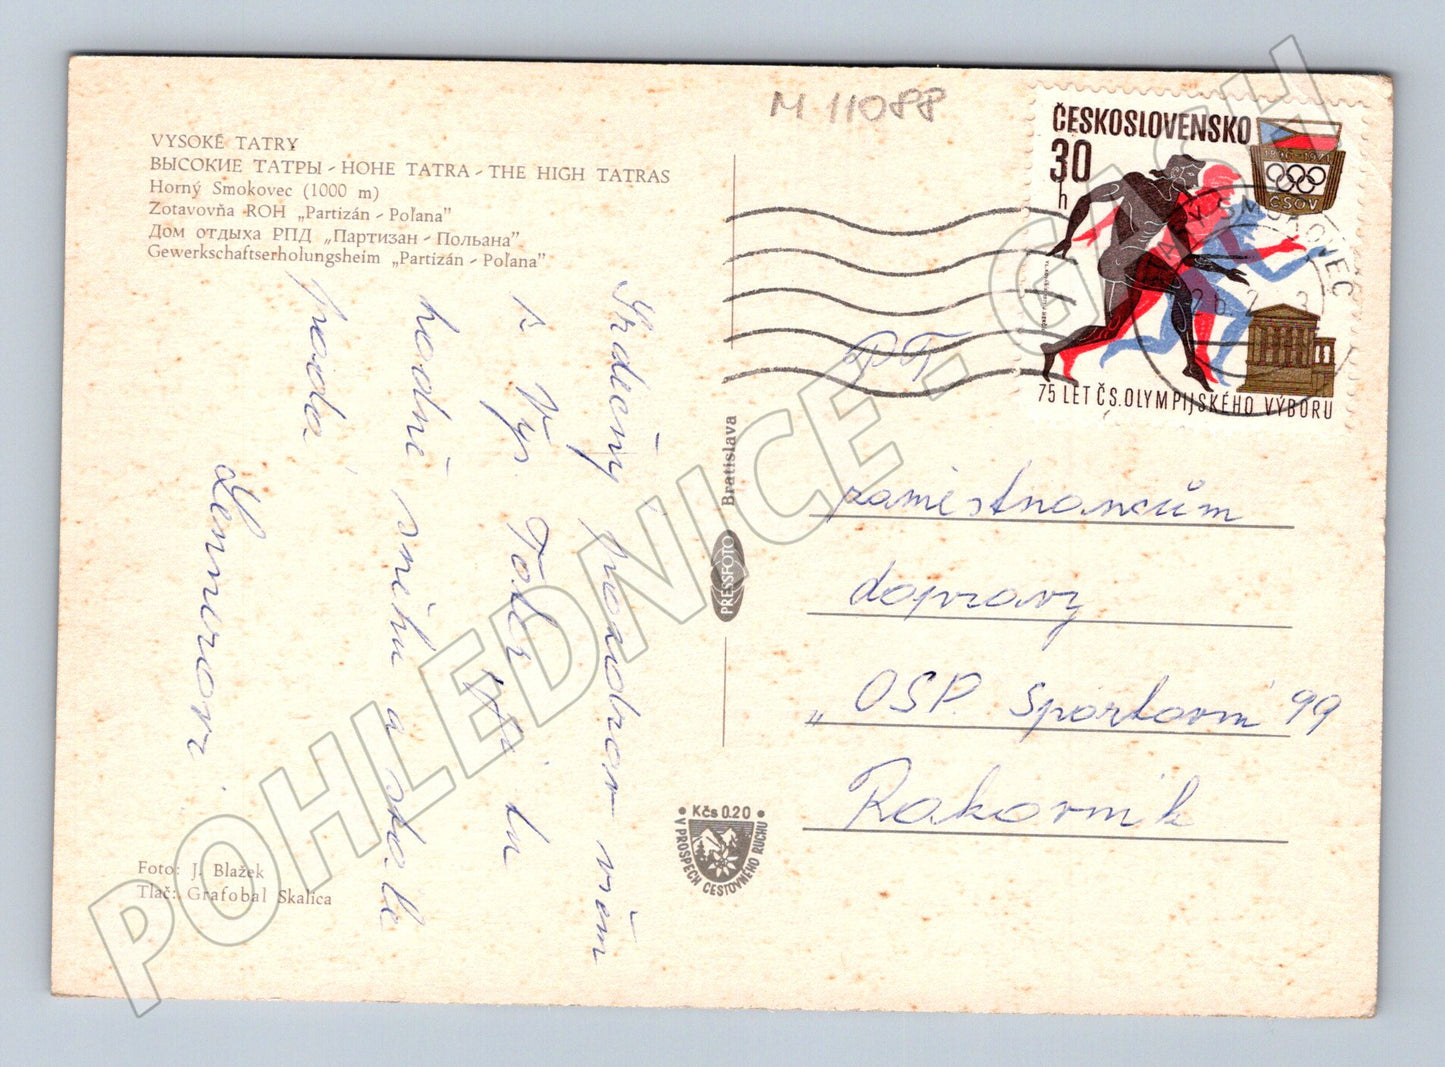 M 11088
VYSOKÉ TATRY
ВЫСОКИЕ ТАТРЫ - HOHE TATRA - THE HIGH TATRAS
Horný Smokovec (1000 m)
Zotavovňa ROH „Partizán - Poľana"
Дом отдыха РПД „Партизан - Польана"
Gewerkschaftserholungsheim „Partizán - Poľana"
Srdečný pozdrav všem
z Vys Tater. Je tu
hodně sněhu a stále
padá
Lennerovi.
Foto: J. Blažek
Tlač: Grafobal Skalica
Bratislava
PRESSFOTO
Kčs 0.20
V PROSPECH CESTOVNÉHO RUCHU
ČESKOSLOVENSKO
30
h
1896-1971
ČSOV
75 LET ČS. OLYMPIJSKÉHO VÝBORU
STARÝ SMOKOVEC
P.T.
zaměstnancům
dopravy
„OSP Sportovní 99
Rakovník
POHLEDNICE - CASH